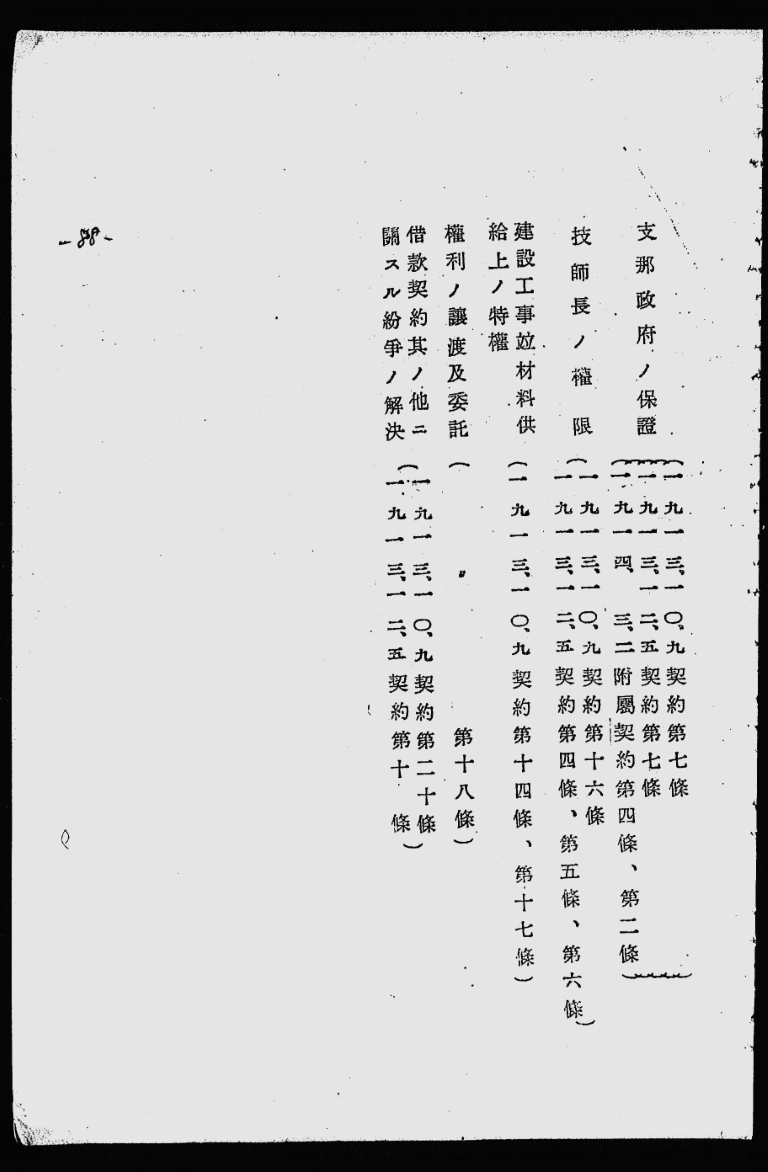 支那政府ノ保證
（一九一三、一〇、九契約第七條
一九一三、一二、五契約第七條
一九一四、三、二附屬契約第四條、第二條）
技師長ノ權限
（一九一三、一〇、九契約第十六條
一九一三、一二、五契約第四條、第五條、第六條）
建設工事竝材料供
給上ノ特權
（一九一三、一〇、九契約第十四條、第十七條）
權利ノ讓渡及委託
（〃第十八條）
借款契約其ノ他ニ
關スル紛爭ノ解決
（一九一三、一〇、九契約第二十條
一九一三、一二、五契約第十條）